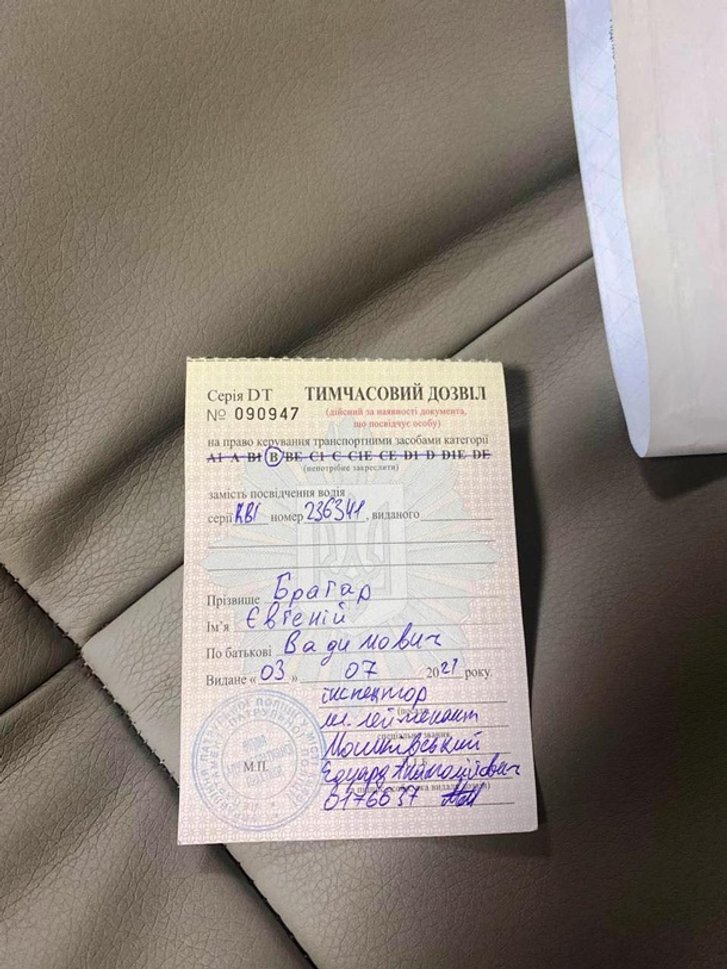 Серія DT ТИМЧАСОВИЙ ДОЗВІЛ
№ 090947 (дійсний за наявності документа,
що посвідчує особу)
на право керування транспортними засобами категорії
A1 A B1 B BE C1 C C1E CE D1 D D1E DE
(непотрібне закреслити)
замість посвідчення водія
серії номер 236341, виданого
Прізвище Брагар
Ім'я Євгеній
По батькові Вадимович
Видане «03» 07 2021 року.
інспектор
(посада)
мл. лейтенант
спеціальне звання
Едуард Анатолійович
0176637
М.П.